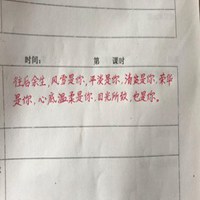 时间: 第 课时
往后余生,风雪是你,平淡是你,清贫是你,荣华
是你,心底温柔是你,目光所致,也是你。